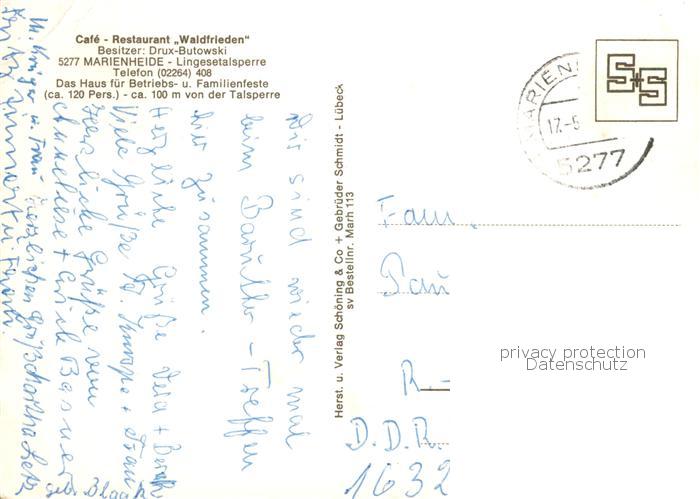 Café - Restaurant „Waldfrieden"
Besitzer: Drux-Butowski
5277 MARIENHEIDE - Lingesetalsperre
Telefon (02264) 408
Das Haus für Betriebs- u. Familienfeste
(ca. 120 Pers.) - ca. 100 m von der Talsperre
Wir sind wieder mal
beim Baruther - Treffen
hier zusammen.
Herzliche Grüße Vera +
Viele Grüße + Frau
Herzliche Grüße von
Anneliese +
geb.
u. Frau
Herzlichen Gruß
Herst. u. Verlag Schöning & Co + Gebrüder Schmidt - Lübeck
sv Bestellnr. Marh 113
S+S
MARIEN
17.-5
5277
Fam.
Pau
R
D.D.R.
1632
privacy protection
Datenschutz